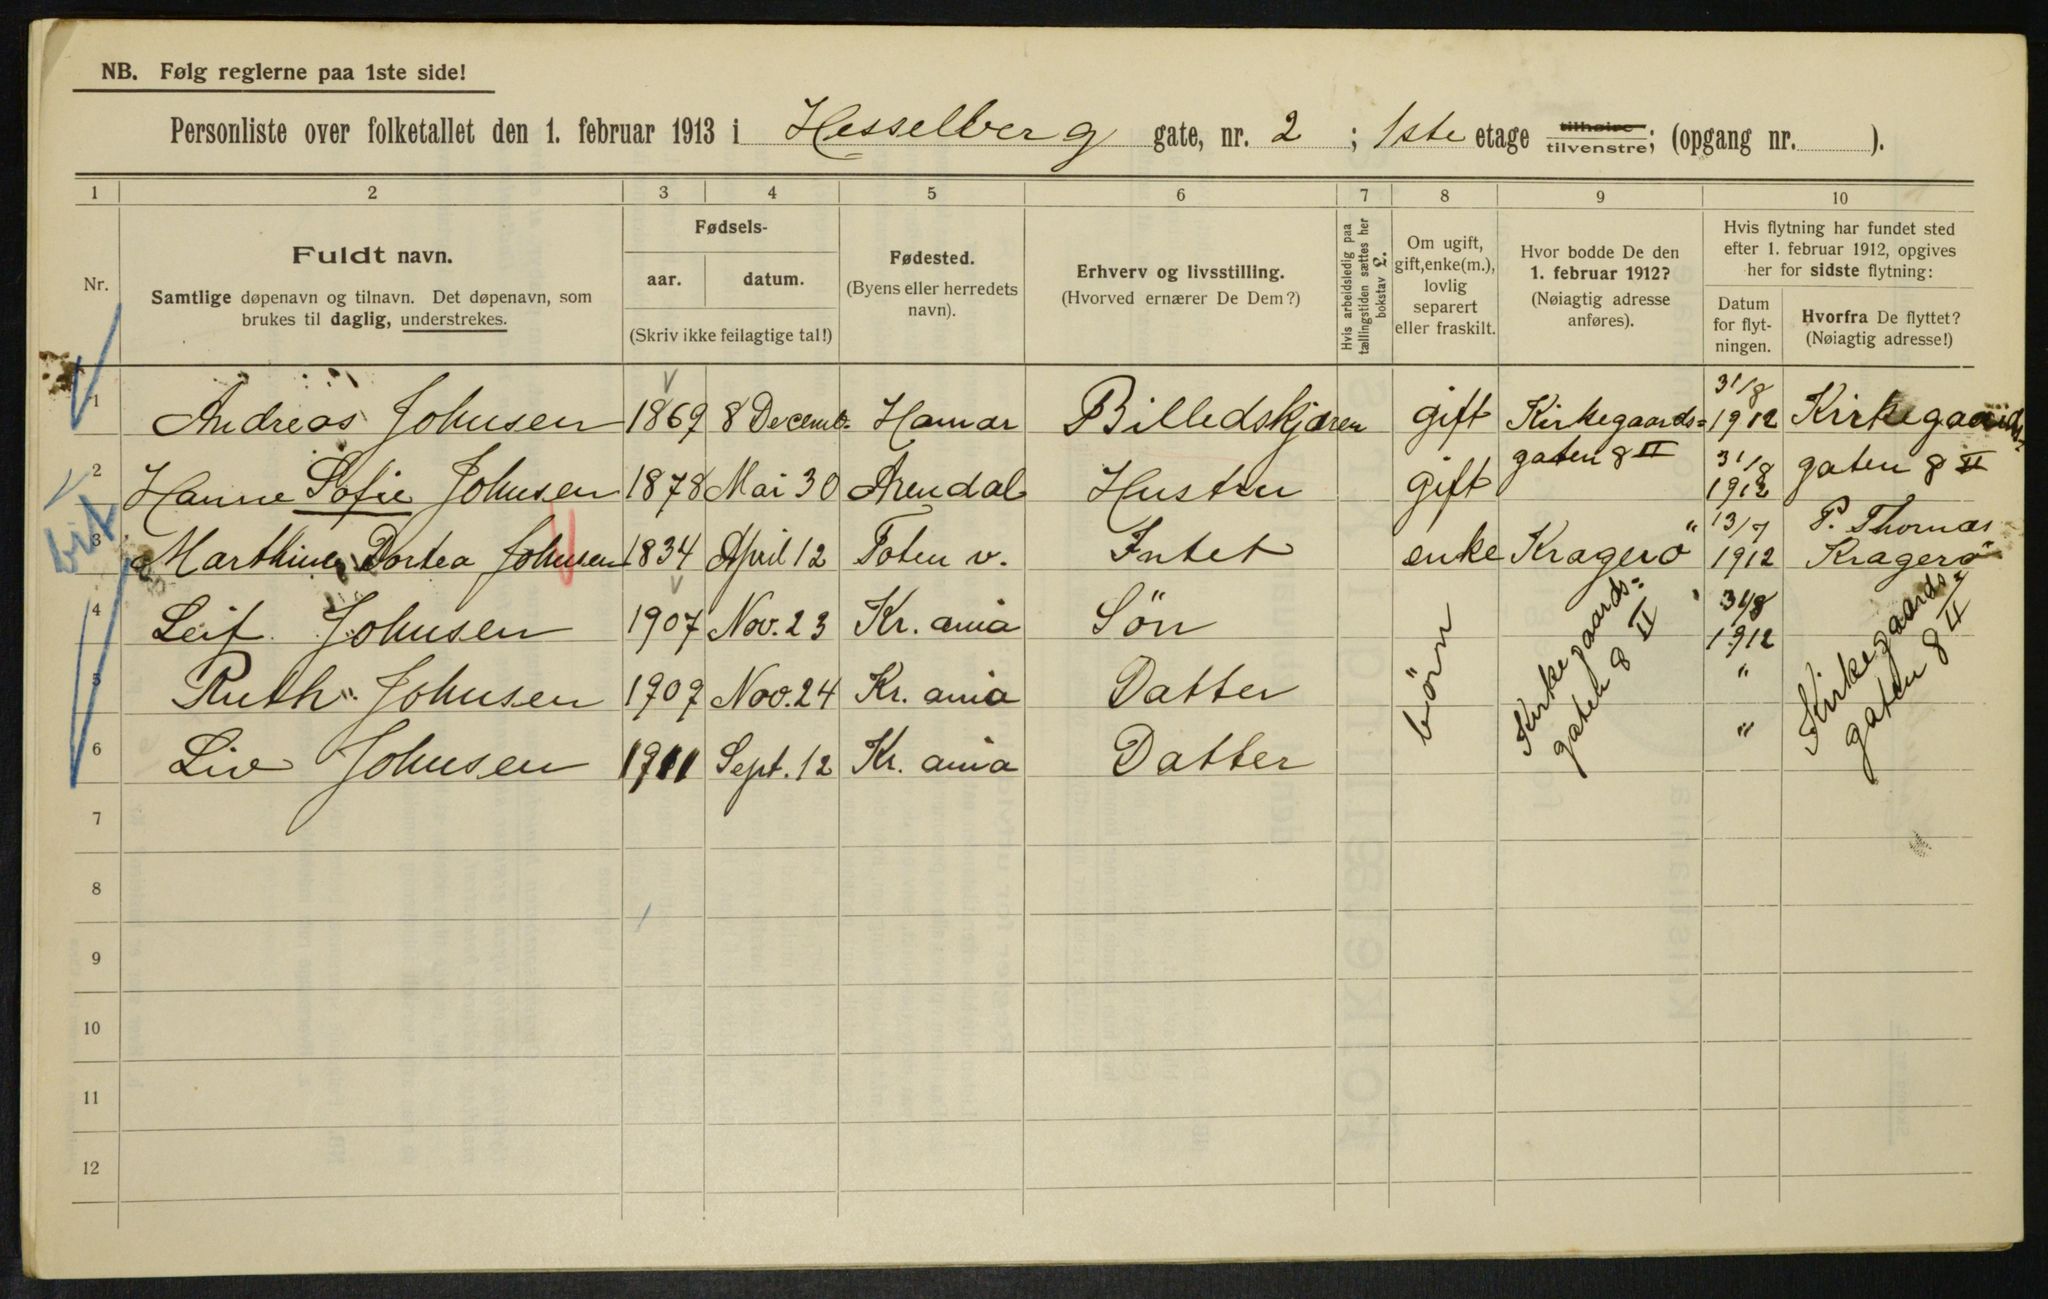 NB. Følg reglerne paa 1ste side!
Personliste over folketallet den 1. februar 1913 i Hesselberg gate, nr. 2 ; 1ste etage tilhøire tilvenstre; (opgang nr. ).
1 2 3 4 5 6 7 8 9 10
Nr.
Fuldt navn.
Samtlige døpenavn og tilnavn. Det døpenavn, som
brukes til daglig, understrekes.
Fødsels-
aar. datum.
(Skriv ikke feilagtige tal!)
Fødested.
(Byens eller herredets
navn).
Erhverv og livsstilling.
(Hvorved ernærer De Dem?)
Hvis arbeidsledig paa
tællingstiden sættes her
bokstav L.
Om ugift,
gift, enke(m.),
lovlig
separert
eller fraskilt.
Hvor bodde De den
1. februar 1912?
(Nøiagtig adresse
anføres).
Hvis flytning har fundet sted
efter 1. februar 1912, opgives
her for sidste flytning:
Datum
for flyt-
ningen.
Hvorfra De flyttet?
(Nøiagtig adresse!)
1 Andreas Johnsen 1869 8 Decemb. Hamar Billedskjærer gift Kirkegaards= gaten 8 II 31/8 1912 Kirkegaards- gaten 8 II
2 Hanne Sofie Johnsen 1878 Mai 30 Arendal Hustru gift 31/8 1912
bit
3 Marthine Dortea Johnsen 1834 April 12 Toten v. Intet enke Kragerö 13/7 1912 P. Thornæs Kragerö
4 Leif Johnsen 1907 Nov. 23 Kr. ania Sön börn Kirkegaards= gaten 8 II 31/8 1912 Kirkegaards= gaten 8 II
5 Ruth Johnsen 1909 Nov. 24 Kr. ania Datter "
6 Liv Johnsen 1911 Sept. 12 Kr. ania Datter "
7
8
9
10
11
12